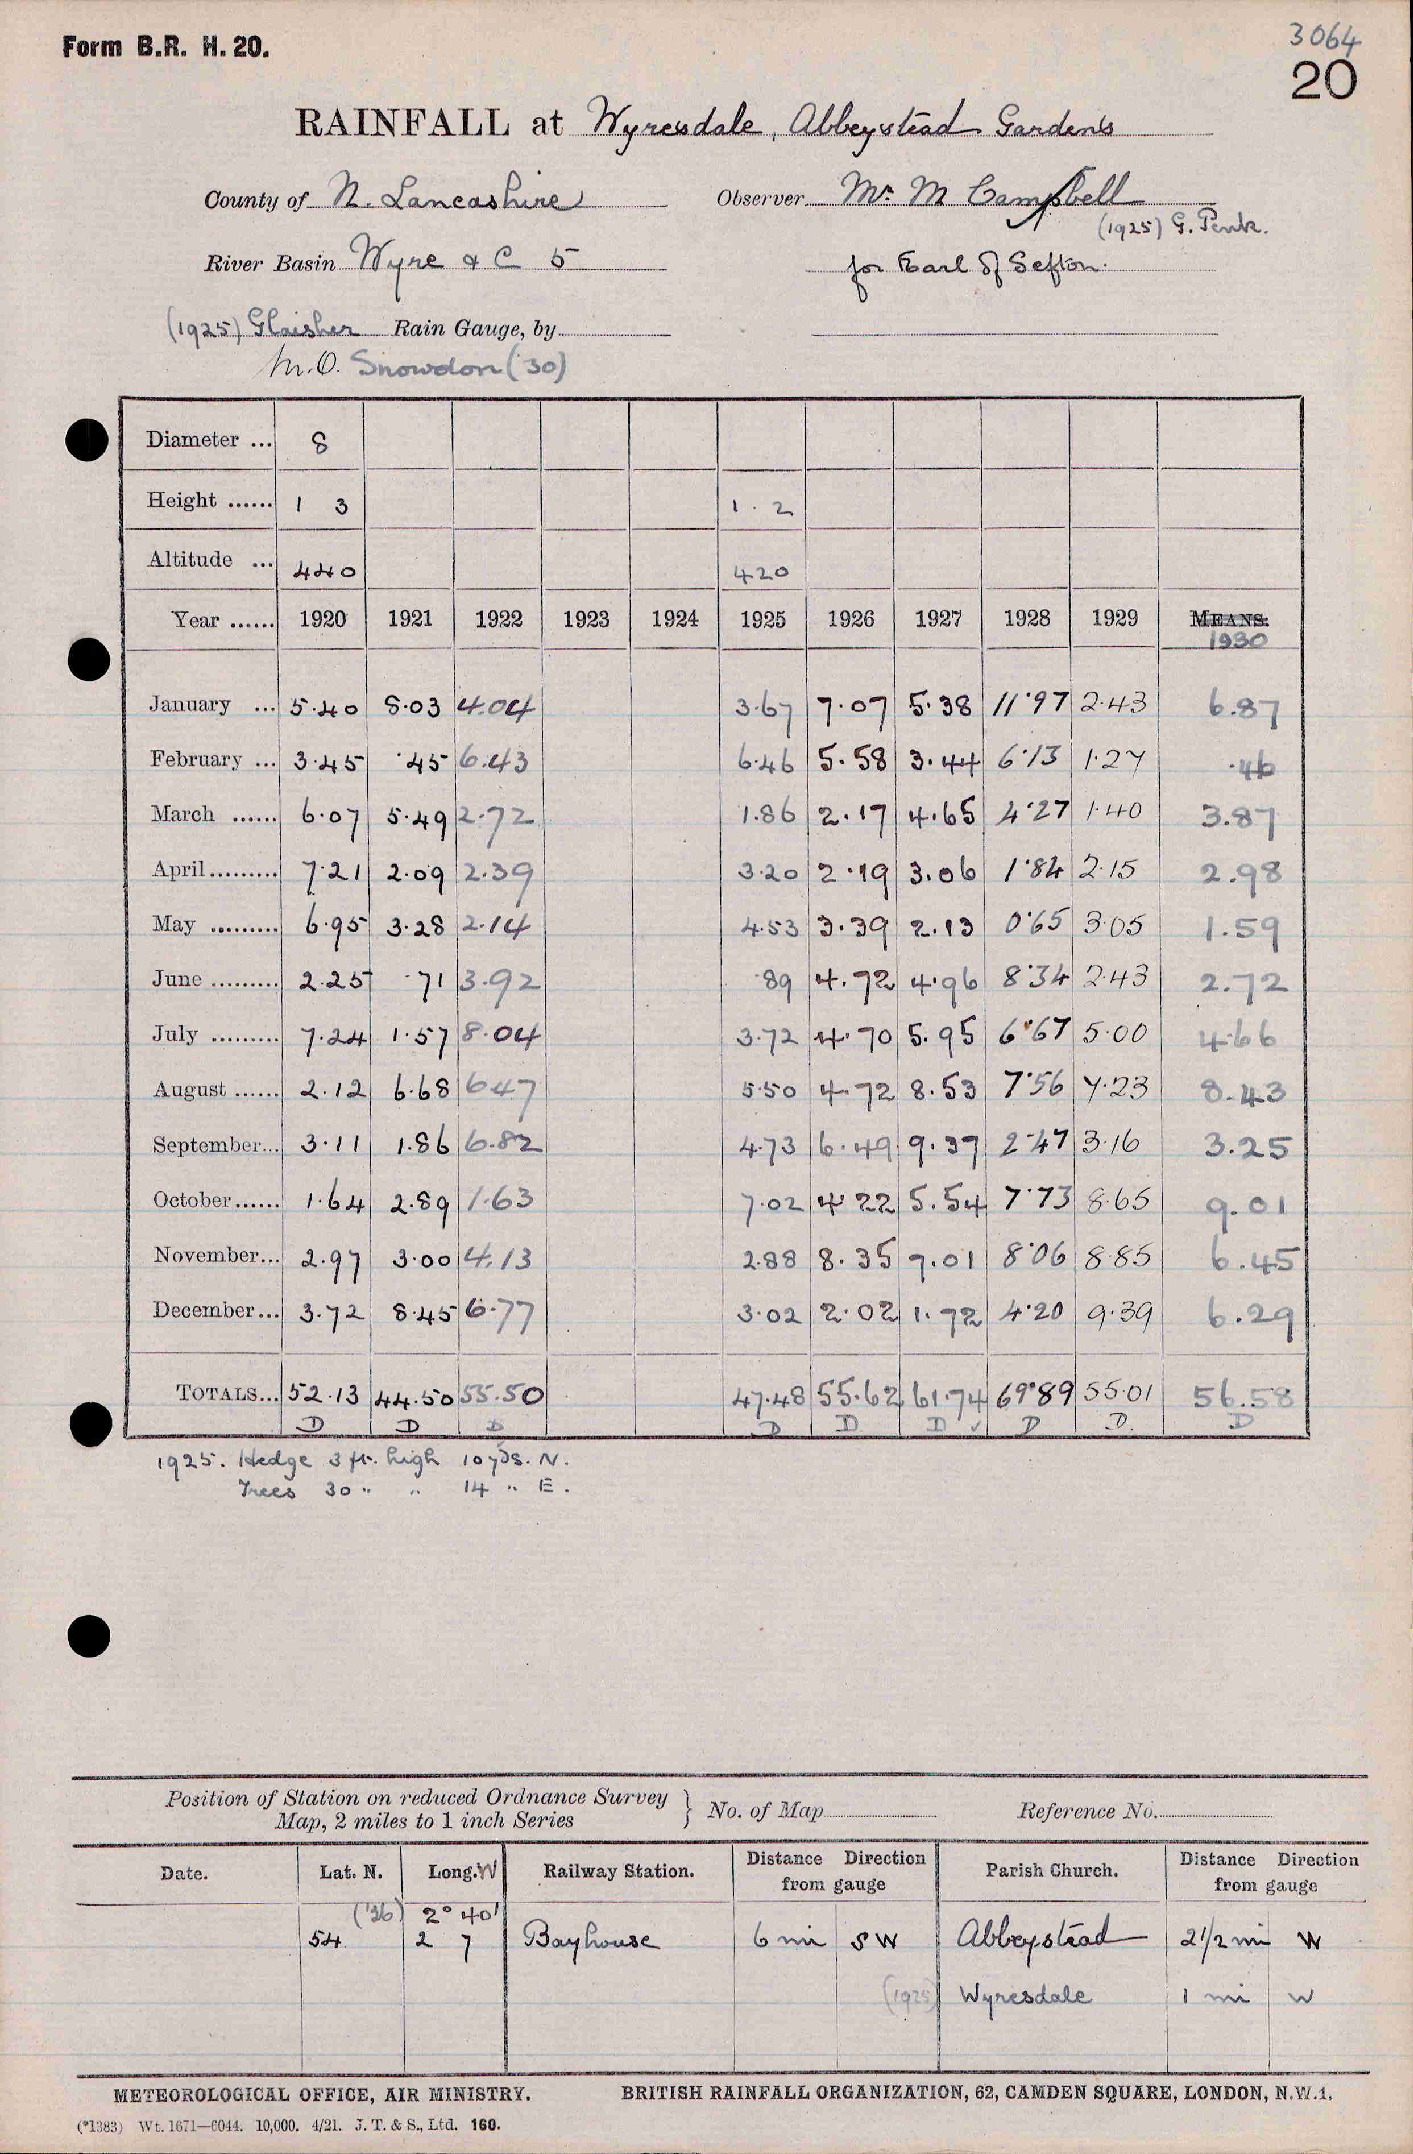 3064
Form B.R. H. 20.
20
RAINFALL at Wyresdale, Abbeystead Gardens
County of N. Lancashire Observer Mr. M Campbell
(1925) G. Penk.
River Basin Wyre & C 5 for Earl of Sefton.
(1925) Glaisher Rain Gauge, by
M.O. Snowdon ('30)
Diameter ... 8
Height ...... 1 3 1.2
Altitude ... 440 420
Year ...... 1920 1921 1922 1923 1924 1925 1926 1927 1928 1929 MEANS.
1930
January ... 5.40 8.03 4.04 3.67 7.07 5.38 11.97 2.43 6.87
February ... 3.45 .45 6.43 6.46 5.58 3.44 6.13 1.27 .46
March ...... 6.07 5.49 2.72 1.86 2.17 4.65 4.27 1.40 3.87
April......... 7.21 2.09 2.39 3.20 2.19 3.06 1.84 2.15 2.98
May ......... 6.95 3.28 2.14 4.53 3.39 2.13 0.65 3.05 1.59
June ......... 2.25 .71 3.92 .89 4.72 4.96 8.34 2.43 2.72
July ......... 7.24 1.57 8.04 3.72 4.70 5.95 6.67 5.00 4.66
August ...... 2.12 6.68 6.47 5.50 4.72 8.53 7.56 7.23 8.43
September... 3.11 1.86 6.82 4.73 6.49 9.37 2.47 3.16 3.25
October...... 1.64 2.89 1.63 7.02 4.22 5.54 7.73 8.65 9.01
November... 2.97 3.00 4.13 2.88 8.35 7.01 8.06 8.85 6.45
December... 3.72 8.45 6.77 3.02 2.02 1.72 4.20 9.39 6.29
TOTALS... 52.13 44.50 55.50 47.48 55.62 61.74 69.89 55.01 56.58
D D D D D D ✓ D D. D
1925. Hedge 3 ft. high 10 yds. N.
Trees 30 " " 14 " E.
Position of Station on reduced Ordnance Survey
Map, 2 miles to 1 inch Series } No. of Map Reference No.
Date. Lat. N. Long. W Railway Station. Distance Direction from gauge Parish Church. Distance Direction from gauge
('26) 2° 40'
54 2 7 Bayhouse 6 mi SW Abbeystead 2 1/2 mi W
(1925) Wyresdale 1 mi W
METEOROLOGICAL OFFICE, AIR MINISTRY. BRITISH RAINFALL ORGANIZATION, 62, CAMDEN SQUARE, LONDON, N.W.1.
(*1383) Wt. 1671—6044. 10,000. 4/21. J. T. & S., Ltd. 160.